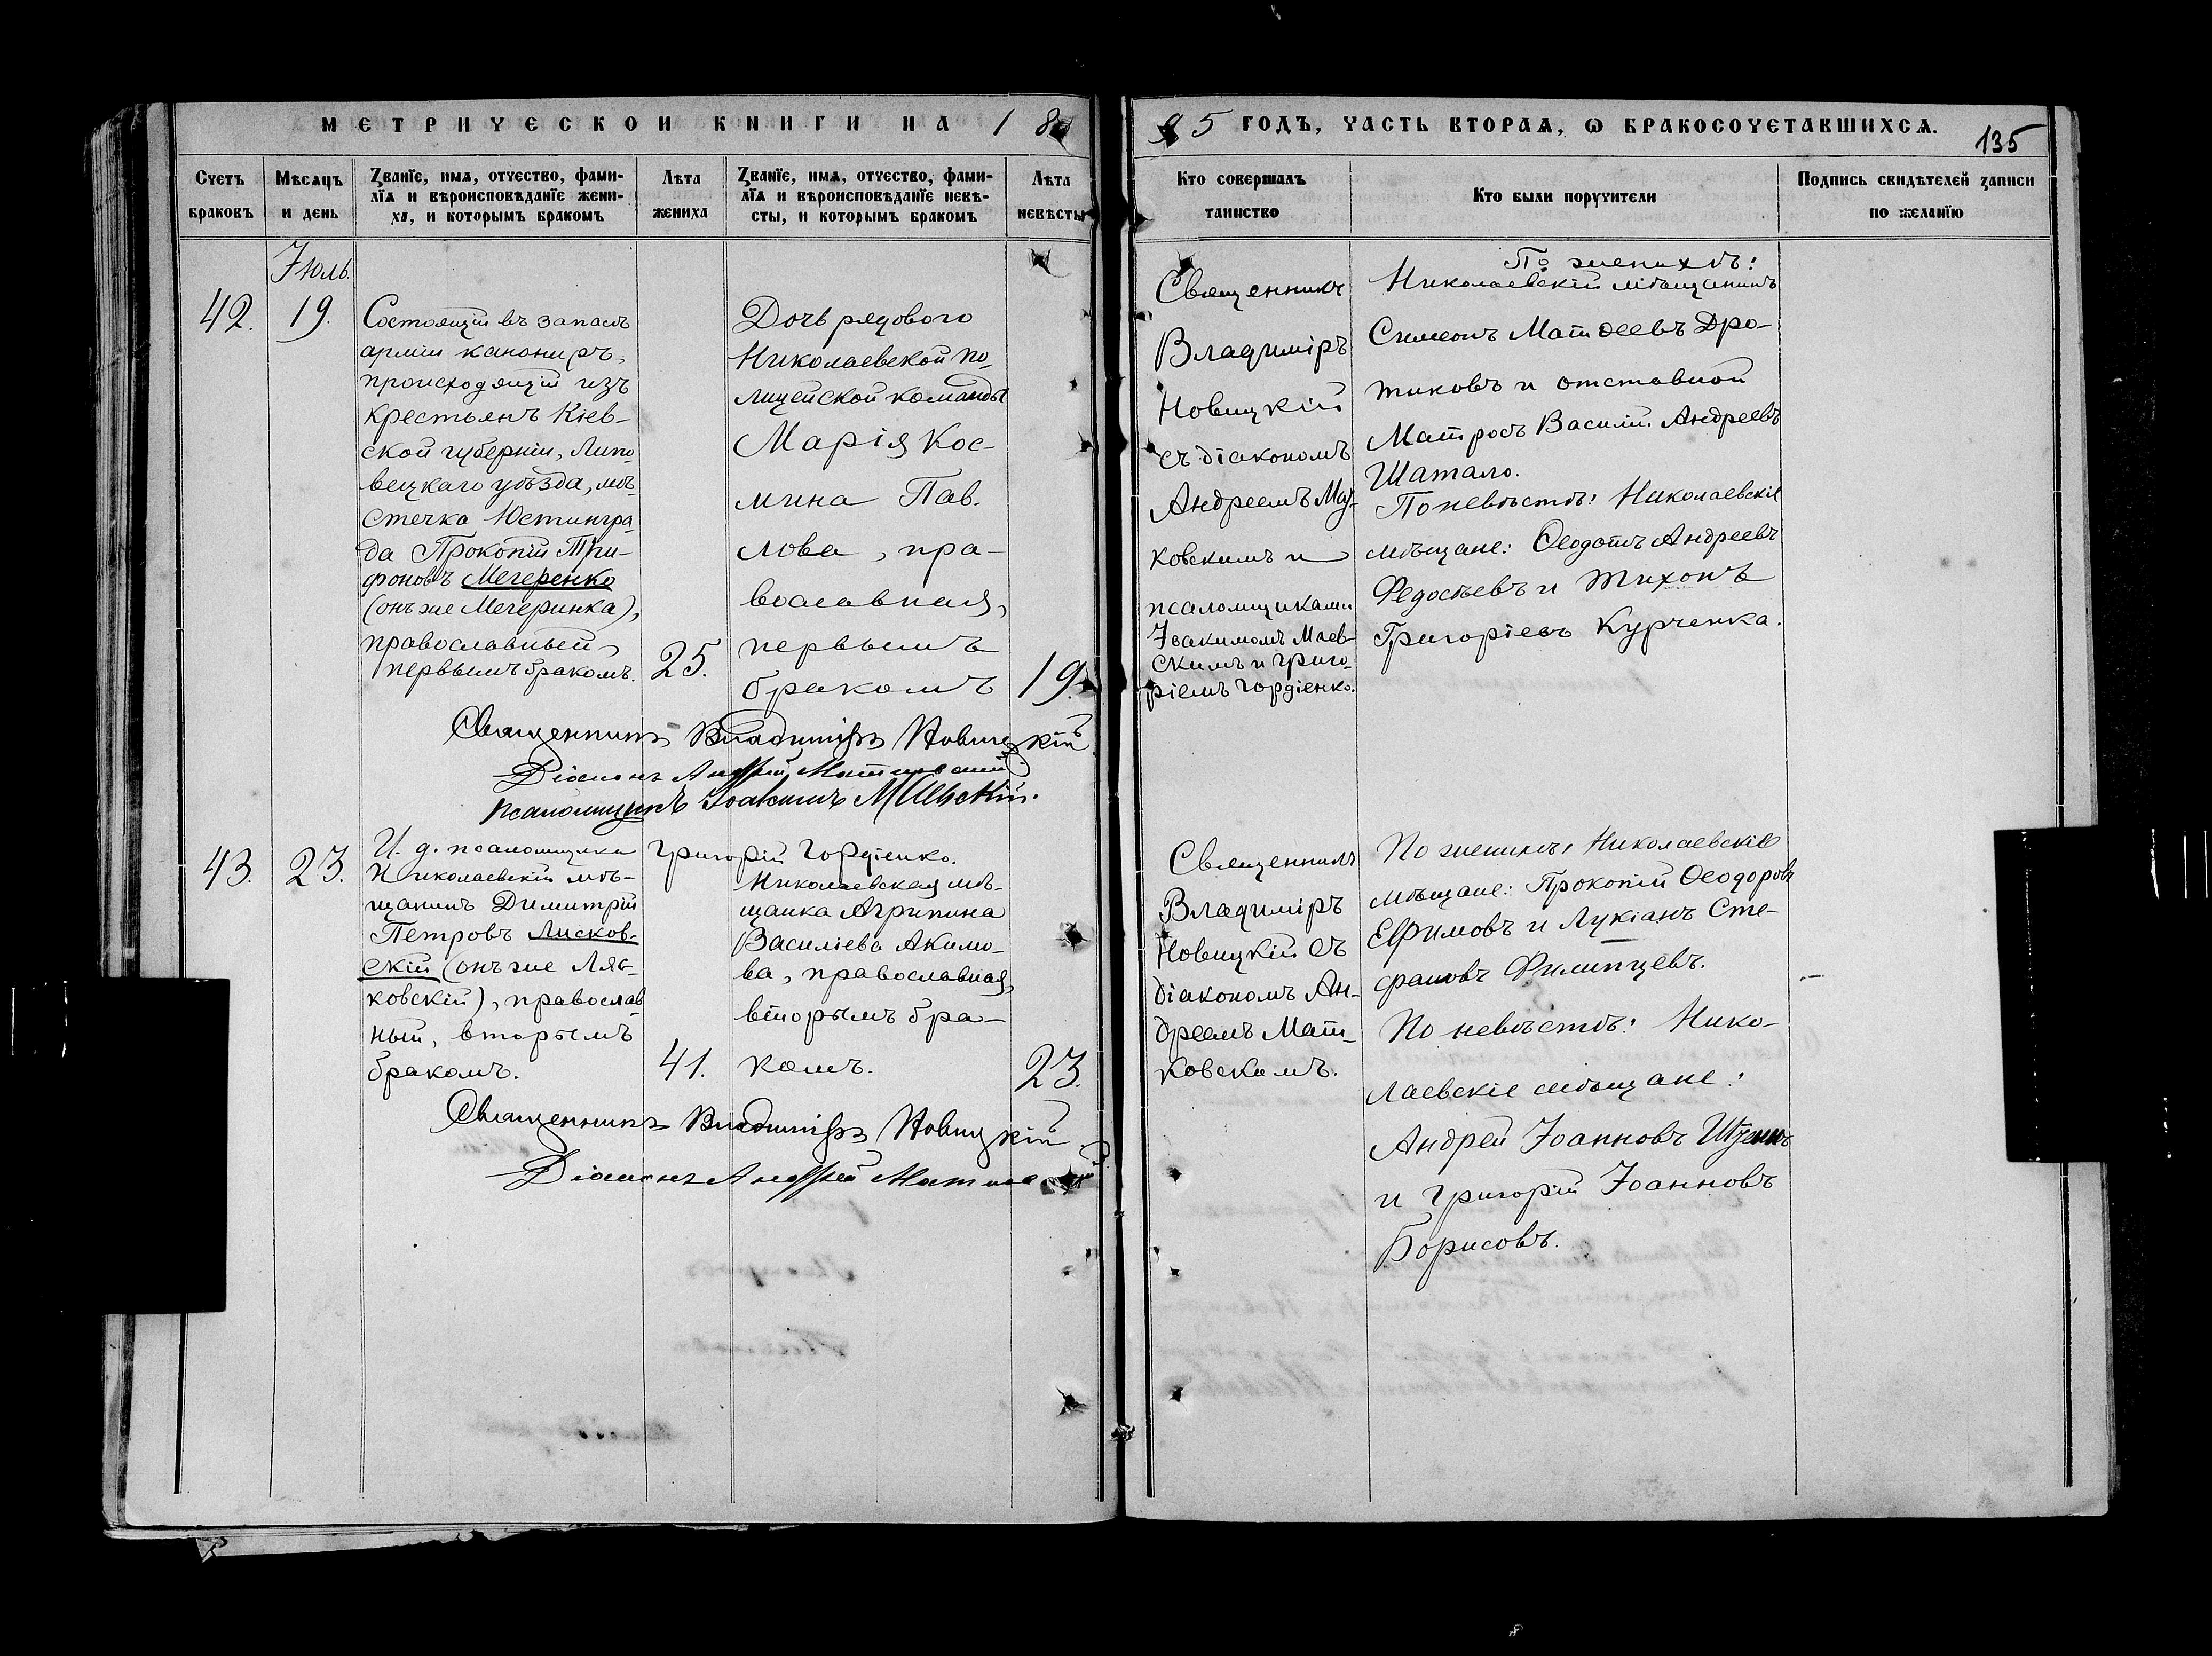 МЕТРИЧЕСКОЙ КНИГИ НА 18
95 ГОДЪ, ЧАСТЬ ВТОРАЯ, Ѡ БРАКОСОЧЕТАВШИХСЯ.
135
Счетъ браковъ
Мѣсяцъ и день
Званіе, имя, отчество, фами-
лія и вѣроисповѣданіе жени-
ха, и которымъ бракомъ
Лѣта жениха
Званіе, имя, отчество, фами-
лія и вѣроисповѣданіе невѣ-
сты, и которымъ бракомъ
Лѣта невѣсты
Кто совершалъ таинство
Кто были поручители
Подпись свидѣтелей записи
по желанію
Іюль.
42.
19.
Состоящій въ запасѣ
арміи канониръ,
происходящій изъ
крестьянъ Кіев-
ской губерніи, Липо-
вецкаго уѣзда, мѣ-
стечка Юстингра-
да Прокопій Три-
фоновъ Мегеренко
(онъ же Мегеринка),
православный
первымъ бракомъ.
25.
Дочь рядового
Николаевской по-
лицейской команды
Марія Кос-
мина Пав-
лова, пра-
вославная,
первымъ
бракомъ
19.
Священникъ
Владиміръ
Новицкій
съ діакономъ
Андреемъ
ковскимъ и
псаломщиками
Іоакимомъ Маев-
скимъ и Григо-
ріемъ Гордіенко.
По женихѣ:
Николаевскій мѣщанинъ
Симеонъ Матѳеевъ Дро-
тиковъ и отставной
Матросъ Василій Андреевъ
Шатало.
По невѣстѣ: Николаевскіе
мѣщане: Ѳеодотъ Андреевъ
Федосѣевъ и Тихонъ
Григоріевъ Курченка.
Священникъ Владиміръ Новицкій
Діаконъ Андрей Матковскій
Псаломщикъ Іоакимъ Маевскій.
И. д. псаломщика Григорій Гордіенко.
43.
23.
Николаевскій мѣ-
щанинъ Димитрій
Петровъ Лисков-
скій (онъ же Ляс-
ковскій), православ-
ный, вторымъ
бракомъ.
41.
Николаевская мѣ-
щанка Агрипина
Василіева Акимо-
ва, православная,
вторымъ бра-
комъ.
23.
Священникъ
Владиміръ
Новицкій съ
діакономъ Ан-
дреемъ Мат-
ковскимъ.
По женихѣ: Николаевскіе
мѣщане: Прокопій Ѳеодоровъ
Ефимовъ и Лукіанъ Сте-
фановъ Филипцевъ.
По невѣстѣ: Нико-
лаевскіе мѣщане:
Андрей Іоанновъ
и Григорій Іоанновъ
Борисовъ.
Священникъ Владиміръ Новицкій
Діаконъ Андрей Матковскій